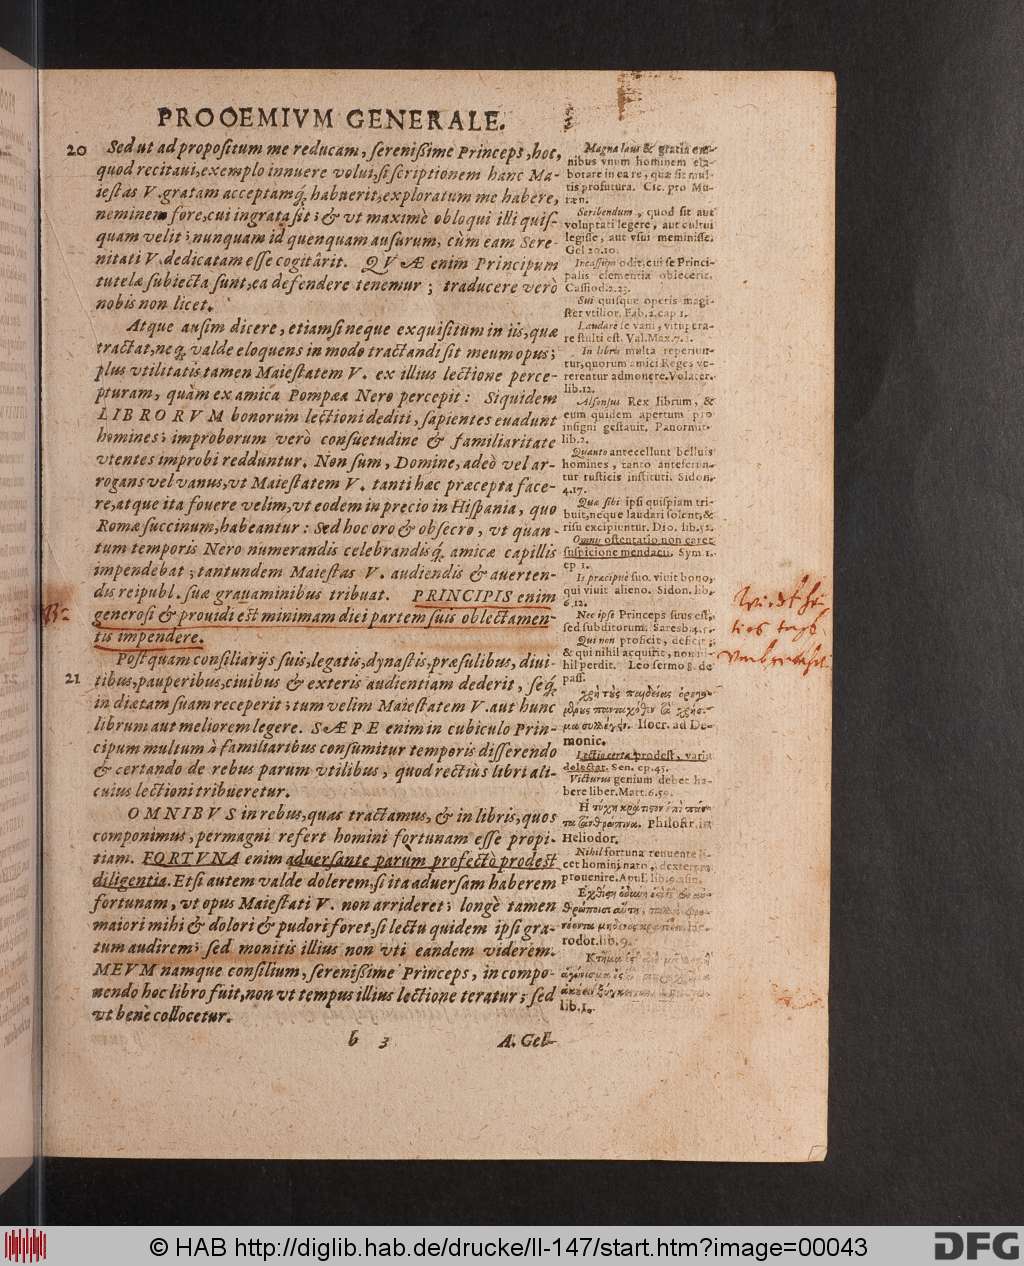 PROOEMIVM GENERALE.
20 Sed ut ad propositum me reducam, serenißime Princeps, hoc,
quod recitavi, exemplo innuere volui, si scriptionem hanc Ma-
iestas V. gratam acceptamq́; habuerit, exploratum me habere,
neminem fore, cui ingrata sit; & vt maximè obloqui illi quis-
quam velit; nunquam id quenquam ausurum, cùm eam Sere-
nitati V. dedicatam esse cogitârit. QVÆ enim Principum
tutelæ subiecta sunt, ea defendere tenemur; traducere verò
nobis non licet.
Atque ausim dicere, etiamsi neque exquisitum in iis, quæ
tractat, neq; valde eloquens in modo tractandi sit meum opus;
plus vtilitatis tamen Maiestatem V. ex illius lectione perce-
pturam, quàm ex amica Pompæa Nero percepit: Siquidem
LIBRORVM bonorum lectioni dediti, sapientes euadunt
homines; improborum verò consuetudine & familiaritate
vtentes improbi redduntur. Non sum, Domine, adeò vel ar-
rogans vel vanus, vt Maiestatem V. tanti hæc præcepta face-
re, atque ita fouere velim, vt eodem in precio in Hispania, quo
Romæ succinum, habeantur: Sed hoc oro & obsecro, vt quan-
tum temporis Nero numerandis celebrandisq́; amicæ capillis
impendebat; tantundem Maiestas V. audiendis & auerten-
dis reipubl. suæ grauaminibus tribuat. PRINCIPIS enim
generosi & prouidi est minimam diei partem suis oblectamen-
tis impendere.
21 Postquam consiliarijs suis, legatis, dynastis, præsulibus, diui-
tibus, pauperibus, ciuibus & exteris audientiam dederit, seq́;
in diætam suam receperit; tum velim Maiestatem V. aut hunc
librum aut meliorem legere. SÆPE enim in cubiculo Prin-
cipum multum à familiaribus consumitur temporis disserendo
& certando de rebus parum vtilibus, quod rectiùs libri ali-
cuius lectioni tribueretur.
OMNIBVS in rebus, quas tractamus, & in libris, quos
componimus, permagni refert homini fortunam esse propi-
tiam. FORTVNA enim aduersante parum profectò prodest
diligentia. Etsi autem valde dolerem, si ita aduersam haberem
fortunam, vt opus Maiestati V. non arrideret; longè tamen
maiori mihi & dolori & pudori foret, si lectu quidem ipsi gra-
tum audirem; sed monitis illius non vti eandem viderem.
MEVM namque consilium, serenißime Princeps, in compo-
nendo hoc libro fuit, non vt tempus illius lectione teratur; sed
vt benè collocetur.
b 3 A. Gel-
Magna laus & gratia om-
nibus vnum hominem ela-
borare in ea re, quæ sit mul-
tis profutura. Cic. pro Mu-
ræn.
Scribendum, quod sit aut
voluptati legere, aut cultui
legisse, aut vsui meminisse.
Gel 20.10.
Incassum odit, cui se Princi-
palis clementia obiecerit.
Cassiod. 2.23.
Sui quisque operis magi-
ster vtilior. Fab. 2. cap 1.
Laudare se vani, vitupera-
re stulti est. Val. Max. 7.2.
In libris multa reperiun-
tur, quorum amici Reges ve-
rerentur admonere. Volater.
lib. 12.
Alfonsus Rex librum, &
eum quidem apertum pro
insigni gestauit. Panormit.
lib. 2.
Quanto antecellunt belluis
homines, tanto anteferun-
tur rusticis instituti. Sidon.
4.17.
Quæ sibi ipsi quispiam tri-
buit, neque laudari solent, &
risu excipiuntur. Dio. lib. 52.
Omnis ostentatio non caret
suspicione mendacii. Sym 1.
ep 1.
Is præcipuè suo. viuit bono,
qui viuit alieno. Sidon. lib.
6.12.
Nec ipse Princeps suus est,
sed subditorum. Saresb. 4.1.
Qui non proficit, deficit;
& qui nihil acquirit, non ni-
hil perdit. Leo sermo 8. de
pass.
Isocr. ad De-
monic.
Lectio certa prodest, varia
delectat. Sen. ep. 45.
Victurus genium debet ha-
bere liber. Mart. 6.59.
Philostr. in
Heliodor.
Nihil fortuna renuente li-
cet homini nato, dexterum
prouenire. Apul. lib. 9. asin.
rodot. lib. 9.
lib. 1.
© HAB http://diglib.hab.de/drucke/ll-147/start.htm?image=00043
DFG